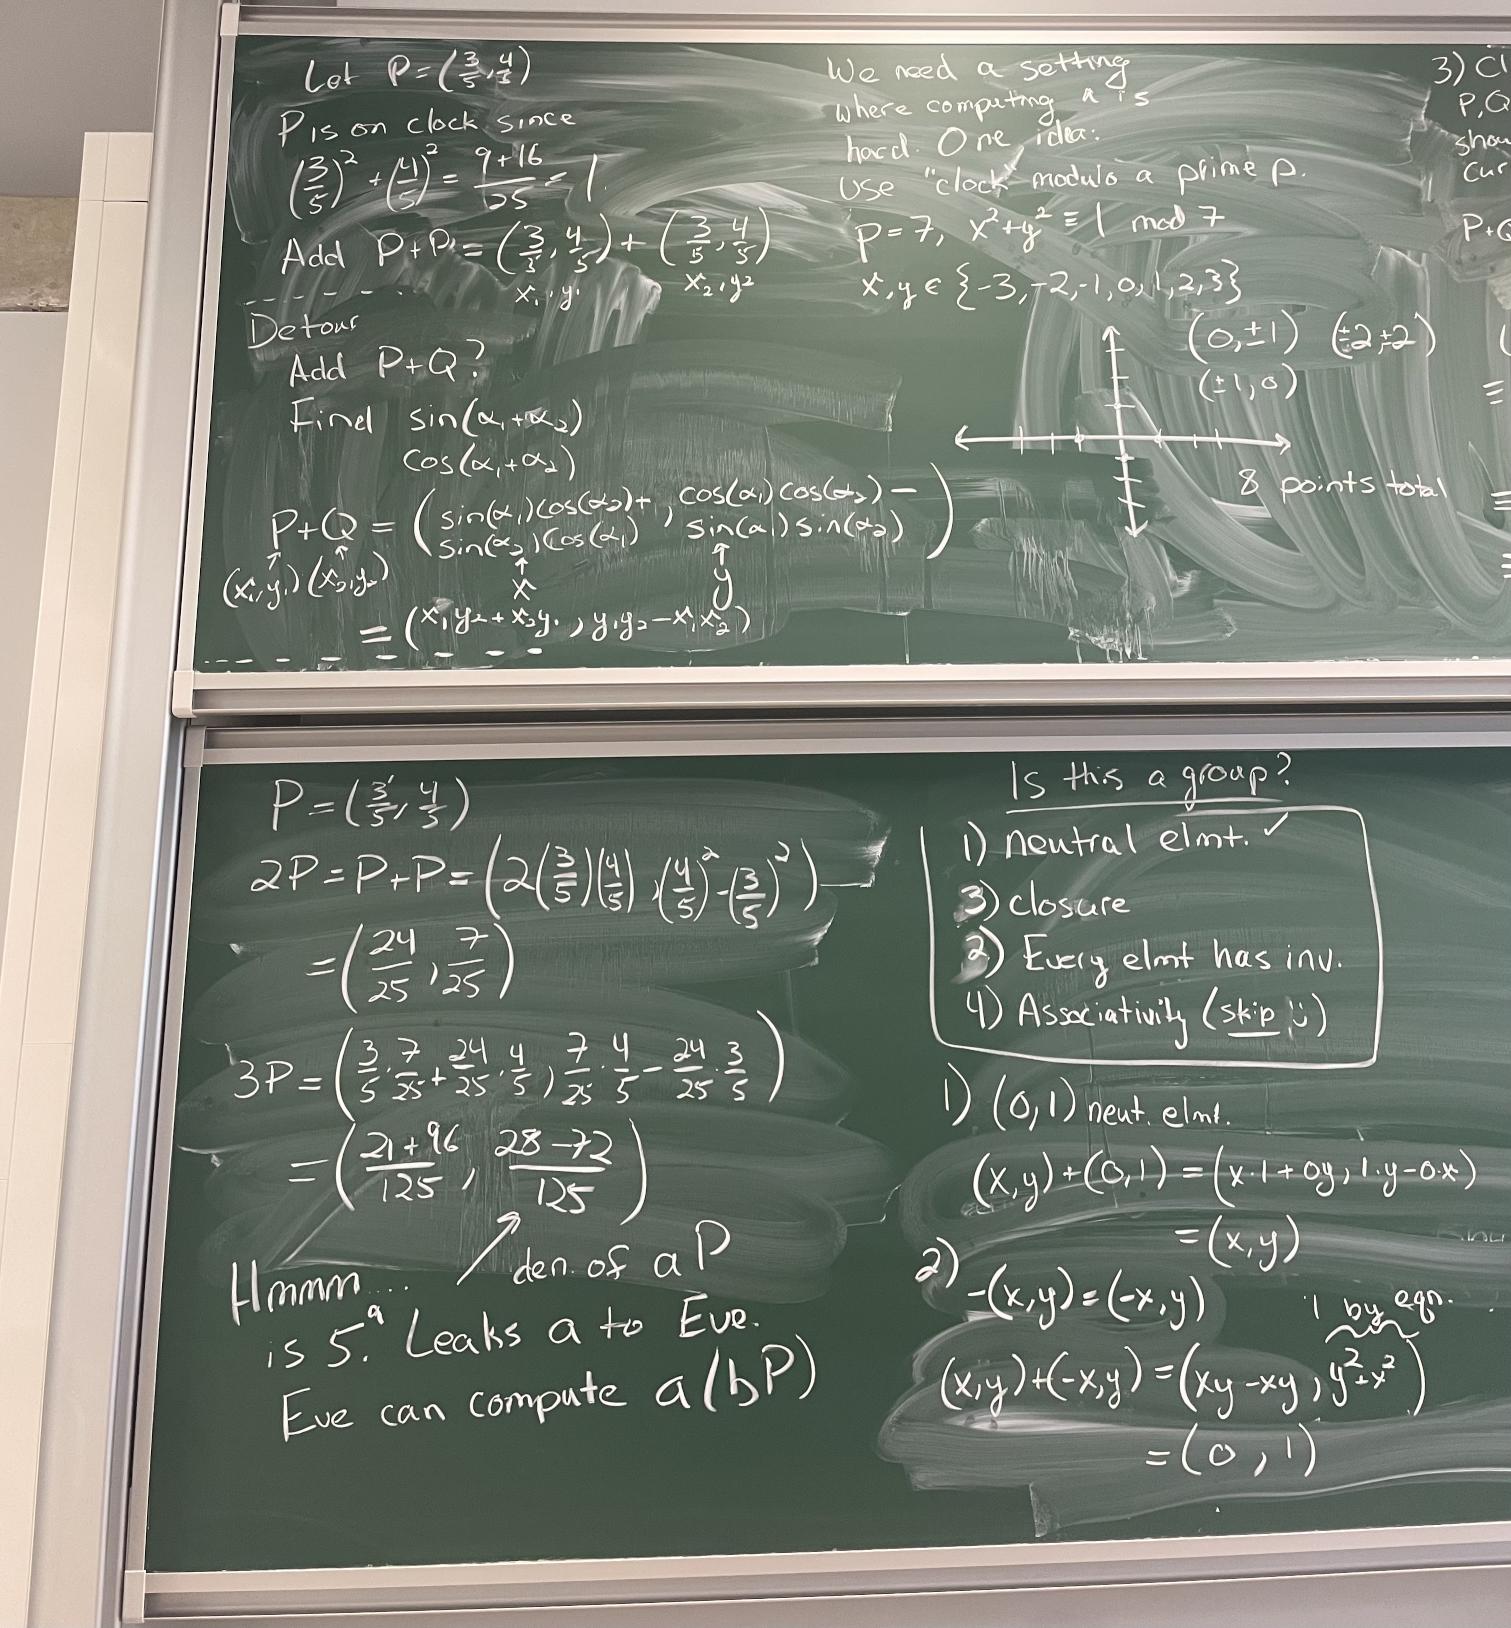 Let P = (3/5, 4/5)
P is on clock since
(3/5)² + (4/5)² = (9+16)/25 = 1.
Add P+P = (3/5, 4/5) + (3/5, 4/5)
x₁, y₁ x₂, y₂
Detour
Add P+Q?
Find sin(α₁+α₂)
cos(α₁+α₂)
P+Q = (sin(α₁)cos(α₂)+ sin(α₂)cos(α₁), cos(α₁)cos(α₂) − sin(α₁)sin(α₂))
↑ ↑ ↑ ↑
(x₁,y₁) (x₂,y₂) x y
= (x₁y₂+x₂y₁, y₁y₂−x₁x₂)
We need a setting
where computing a is
hard. One idea:
Use "clock" modulo a prime p.
p=7, x²+y² ≡ 1 mod 7
x,y ∈ {-3,-2,-1,0,1,2,3}
(0,±1) (±2,±2)
(±1,0)
8 points total
3) Cl
P,Q
shou
cur
P+Q
(
=
=
=
P = (3/5, 4/5)
2P = P+P = (2(3/5)(4/5), (4/5)²-(3/5)²)
= (24/25, 7/25)
3P = (3/5·7/25+24/25·4/5, 7/25·4/5−24/25·3/5)
= ((21+96)/125, (28−72)/125)
Hmmm... ↗ den. of aP
is 5ᵃ. Leaks a to Eve.
Eve can compute a(bP)
Is this a group?
1) neutral elmt. ✓
3) closure
2) Every elmt has inv.
4) Associativity (skip ;))
1) (0,1) neut. elmt.
(x,y)+(0,1) = (x·1+0y, 1·y−0·x)
= (x,y)
2) -(x,y)=(-x,y)
1 by eqn.
(x,y)+(-x,y) = (xy−xy, y²+x²)
= (0,1)